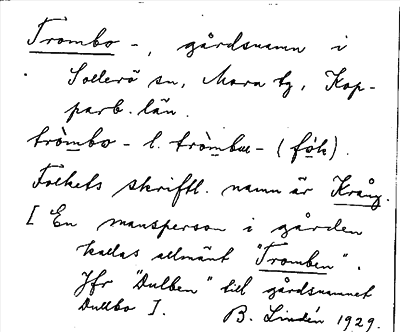 Trombo -, gårdsnamn i
Sollerö sn, Mora tg, Kop-
parb. län.
tròmbo - l. tròmbu - (fok).
Folkets skriftl. namn är Krång.
[ En mansperson i gården
kallas allmänt "Tromben".
Jfr "Dulben" till gårdsnamnet
Dullbo ].
B. Lindén 1929.